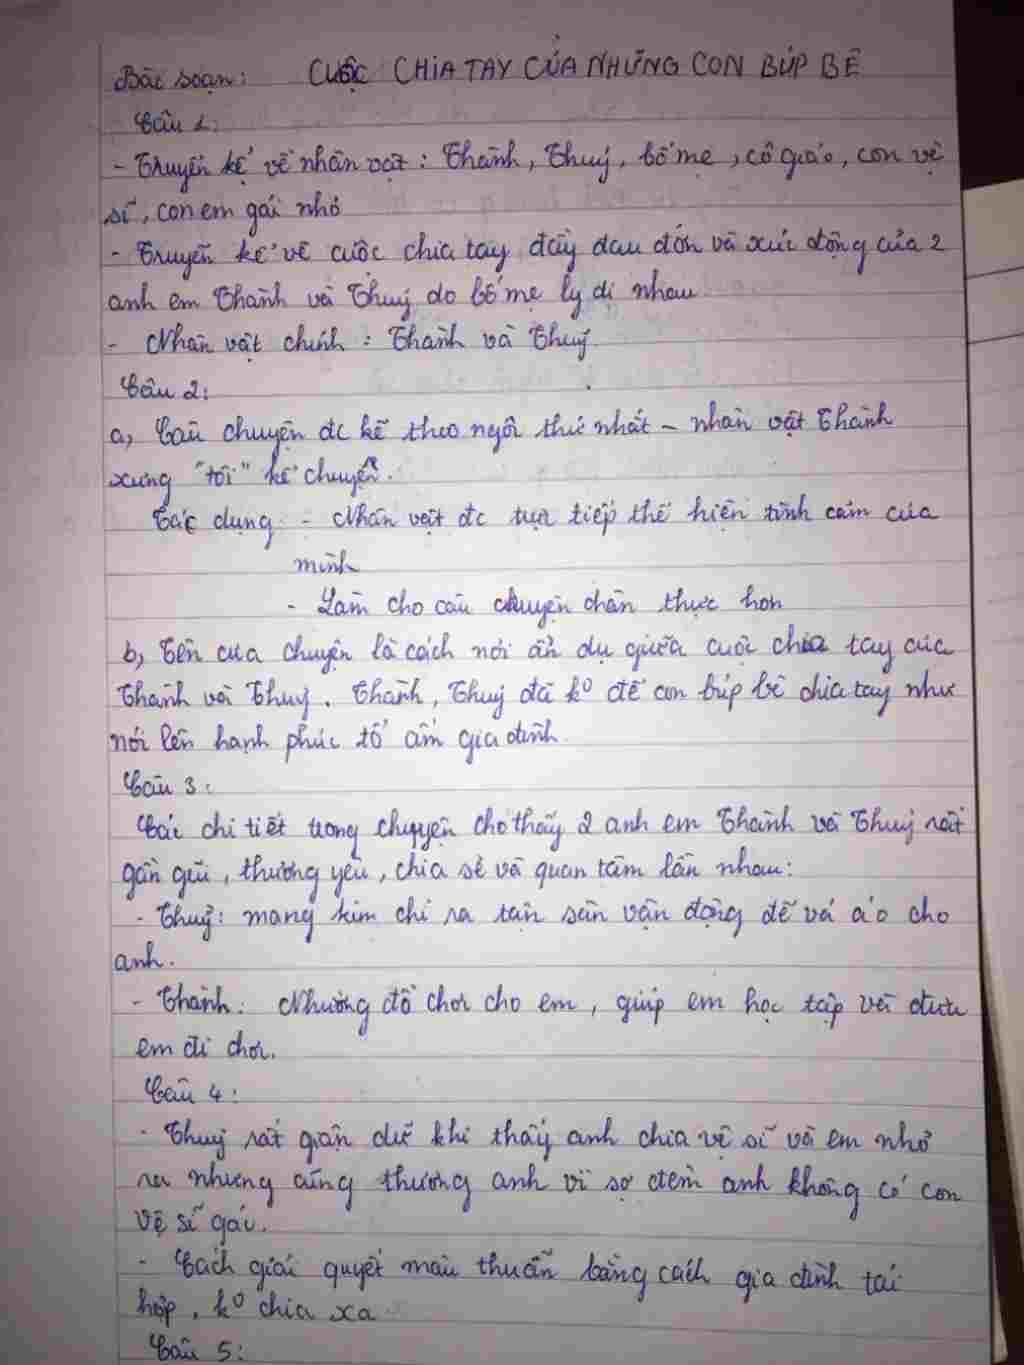 Bài soạn: CUỘC CHIA TAY CỦA NHỮNG CON BÚP BÊ
Câu 1:
- Truyện kể về nhân vật: Thành, Thuỷ, bố mẹ, cô giáo, con vệ
sĩ, con em gái nhỏ
- Truyện kể về cuộc chia tay đầy đau đớn và xúc động của 2
anh em Thành và Thuỷ do bố mẹ ly dị nhau
- Nhân vật chính: Thành và Thuỷ.
Câu 2:
a, Câu chuyện đc kể theo ngôi thứ nhất - nhân vật Thành
xưng "tôi" kể chuyện.
Tác dụng: - Nhân vật đc trực tiếp thể hiện tình cảm của
mình
- Làm cho câu chuyện chân thực hơn
b, Tên của chuyện là cách nói ẩn dụ giữa cuộc chia tay của
Thành và Thuỷ. Thành, Thuỷ đã k° để con búp bê chia tay như
nói lên hạnh phúc tổ ấm gia đình.
Câu 3:
Các chi tiết trong chuyện cho thấy 2 anh em Thành và Thuỷ rất
gần gũi, thương yêu, chia sẻ và quan tâm lẫn nhau:
- Thuỷ: mang kim chỉ ra tận sân vận động để vá áo cho
anh.
- Thành: Nhường đồ chơi cho em, giúp em học tập và đưa
em đi chơi.
Câu 4:
- Thuỷ rất giận dữ khi thấy anh chia vệ sĩ và em nhỏ
ra nhưng cũng thương anh vì sợ đêm anh không có con
vệ sĩ gác.
- Cách giải quyết mâu thuẫn bằng cách gia đình tái
hợp, k° chia xa
Câu 5: